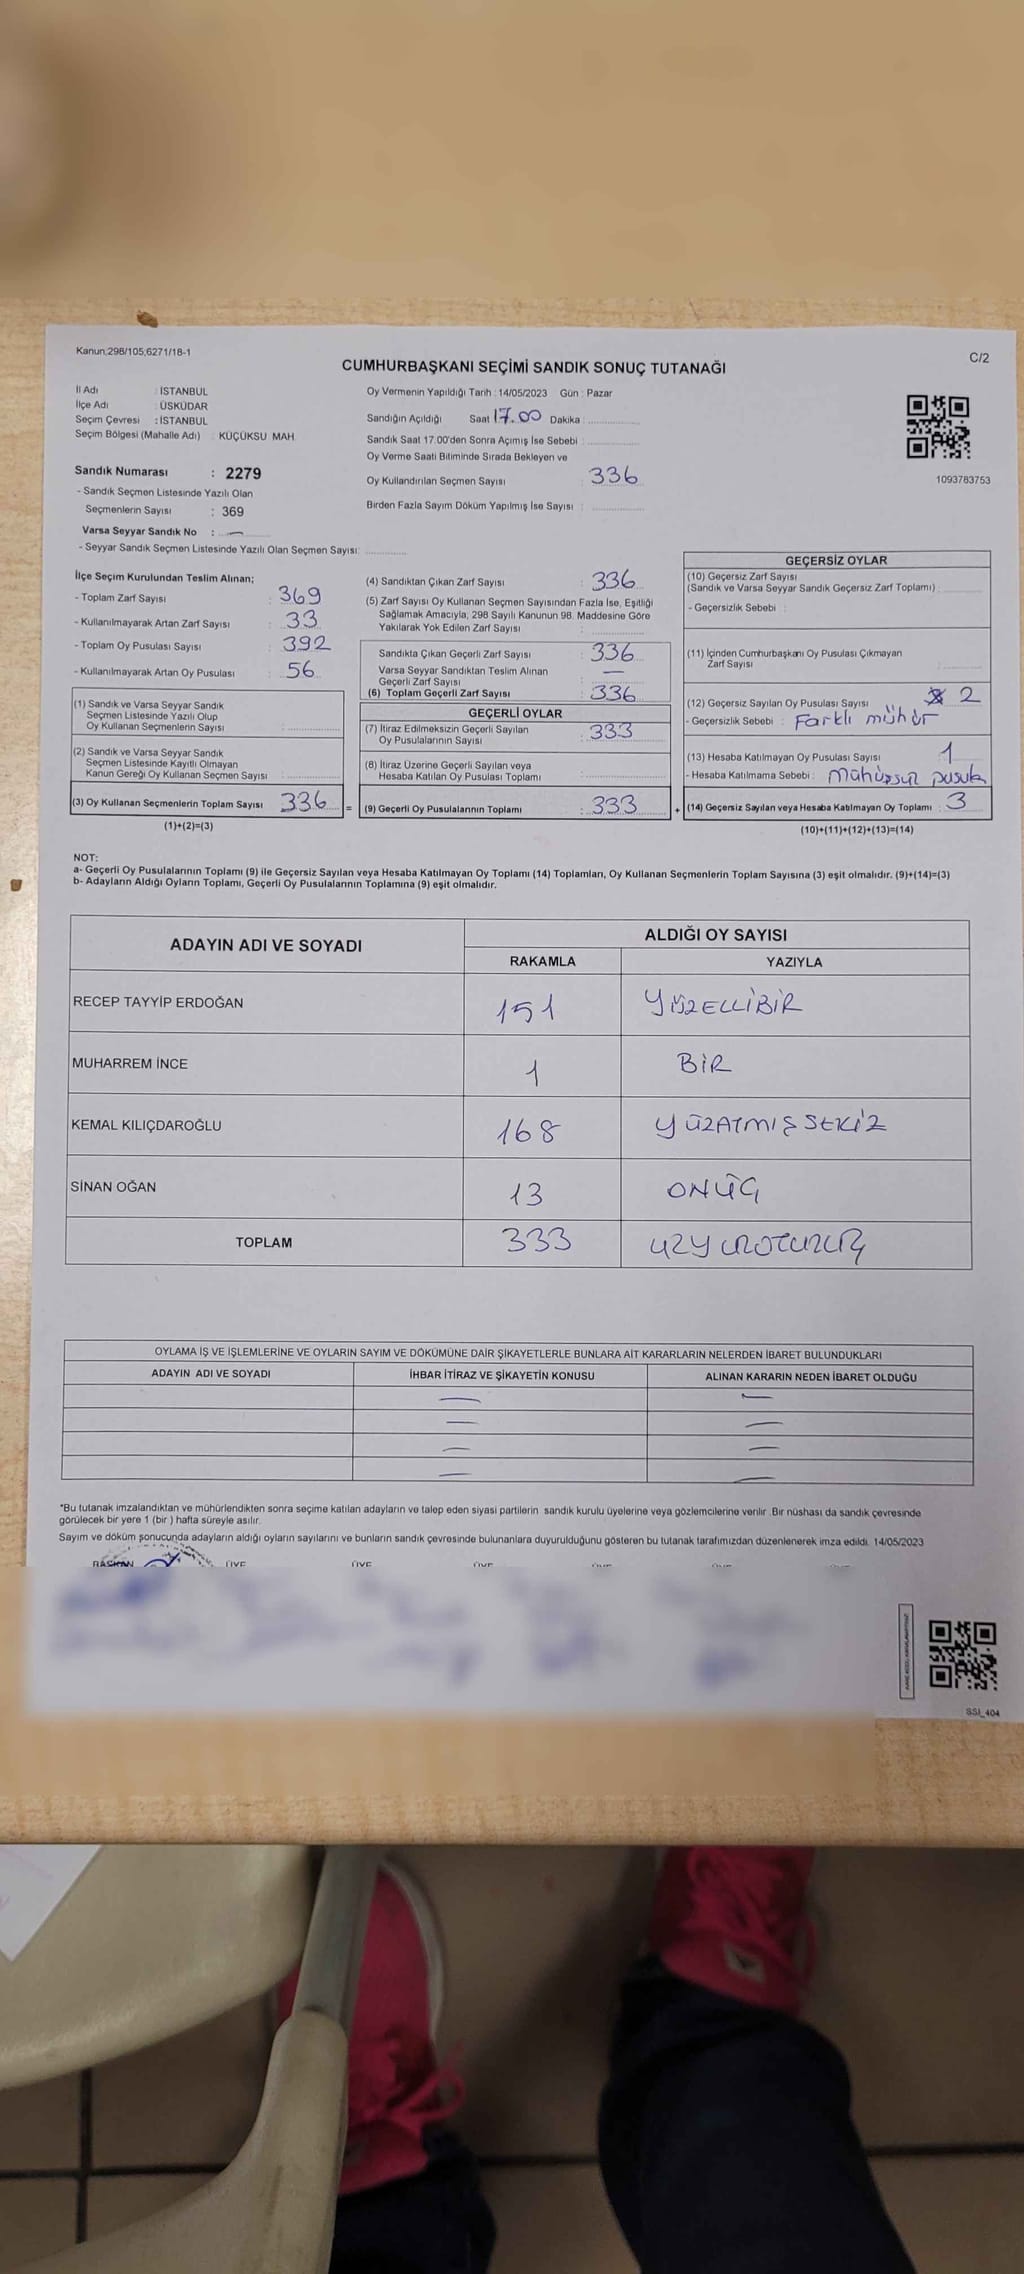 Kanun;298/105;6271/18-1
C/2
CUMHURBAŞKANI SEÇİMİ SANDIK SONUÇ TUTANAĞI
İl Adı : İSTANBUL
İlçe Adı : ÜSKÜDAR
Seçim Çevresi : İSTANBUL
Seçim Bölgesi (Mahalle Adı) : KÜÇÜKSU MAH.
Sandık Numarası : 2279
- Sandık Seçmen Listesinde Yazılı Olan
Seçmenlerin Sayısı : 369
Varsa Seyyar Sandık No : —
- Seyyar Sandık Seçmen Listesinde Yazılı Olan Seçmen Sayısı:
Oy Vermenin Yapıldığı Tarih : 14/05/2023 Gün : Pazar
Sandığın Açıldığı Saat 17.00 Dakika :
Sandık Saat 17.00'den Sonra Açımış İse Sebebi :
Oy Verme Saati Bitiminde Sırada Bekleyen ve
Oy Kullandırılan Seçmen Sayısı : 336
Birden Fazla Sayım Döküm Yapılmış İse Sayısı :
1093783753
İlçe Seçim Kurulundan Teslim Alınan;
- Toplam Zarf Sayısı : 369
- Kullanılmayarak Artan Zarf Sayısı : 33
- Toplam Oy Pusulası Sayısı : 392
- Kullanılmayarak Artan Oy Pusulası : 56
(1) Sandık ve Varsa Seyyar Sandık
Seçmen Listesinde Yazılı Olup
Oy Kullanan Seçmenlerin Sayısı :
(2) Sandık ve Varsa Seyyar Sandık
Seçmen Listesinde Kayıtlı Olmayan
Kanun Gereği Oy Kullanan Seçmen Sayısı :
(3) Oy Kullanan Seçmenlerin Toplam Sayısı : 336 =
(1)+(2)=(3)
(4) Sandıktan Çıkan Zarf Sayısı : 336
(5) Zarf Sayısı Oy Kullanan Seçmen Sayısından Fazla İse, Eşitliği
Sağlamak Amacıyla, 298 Sayılı Kanunun 98. Maddesine Göre
Yakılarak Yok Edilen Zarf Sayısı :
Sandıkta Çıkan Geçerli Zarf Sayısı : 336
Varsa Seyyar Sandıktan Teslim Alınan
Geçerli Zarf Sayısı : —
(6) Toplam Geçerli Zarf Sayısı : 336
GEÇERLİ OYLAR
(7) İtiraz Edilmeksizin Geçerli Sayılan
Oy Pusulalarının Sayısı : 333
(8) İtiraz Üzerine Geçerli Sayılan veya
Hesaba Katılan Oy Pusulası Toplamı :
(9) Geçerli Oy Pusulalarının Toplamı : 333 +
GEÇERSİZ OYLAR
(10) Geçersiz Zarf Sayısı
(Sandık ve Varsa Seyyar Sandık Geçersiz Zarf Toplamı) :
- Geçersizlik Sebebi :
(11) İçinden Cumhurbaşkanı Oy Pusulası Çıkmayan
Zarf Sayısı :
(12) Geçersiz Sayılan Oy Pusulası Sayısı : 2
- Geçersizlik Sebebi : Farklı mühür
(13) Hesaba Katılmayan Oy Pusulası Sayısı : 1
- Hesaba Katılmama Sebebi :
(14) Geçersiz Sayılan veya Hesaba Katılmayan Oy Toplamı : 3
(10)+(11)+(12)+(13)=(14)
NOT:
a- Geçerli Oy Pusulalarının Toplamı (9) ile Geçersiz Sayılan veya Hesaba Katılmayan Oy Toplamı (14) Toplamları, Oy Kullanan Seçmenlerin Toplam Sayısına (3) eşit olmalıdır. (9)+(14)=(3)
b- Adayların Aldığı Oyların Toplamı, Geçerli Oy Pusulalarının Toplamına (9) eşit olmalıdır.
ADAYIN ADI VE SOYADI
ALDIĞI OY SAYISI
RAKAMLA YAZIYLA
RECEP TAYYİP ERDOĞAN 151 YÜZELLİBİR
MUHARREM İNCE 1 BİR
KEMAL KILIÇDAROĞLU 168 YÜZATMIŞSEKİZ
SİNAN OĞAN 13 ONÜÇ
TOPLAM 333
OYLAMA İŞ VE İŞLEMLERİNE VE OYLARIN SAYIM VE DÖKÜMÜNE DAİR ŞİKAYETLERLE BUNLARA AİT KARARLARIN NELERDEN İBARET BULUNDUKLARI
ADAYIN ADI VE SOYADI İHBAR İTİRAZ VE ŞİKAYETİN KONUSU ALINAN KARARIN NEDEN İBARET OLDUĞU
*Bu tutanak imzalandıktan ve mühürlendikten sonra seçime katılan adayların ve talep eden siyasi partilerin sandık kurulu üyelerine veya gözlemcilerine verilir. Bir nüshası da sandık çevresinde
görülecek bir yere 1 (bir ) hafta süreyle asılır.
Sayım ve döküm sonucunda adayların aldığı oyların sayılarını ve bunların sandık çevresinde bulunanlara duyurulduğunu gösteren bu tutanak tarafımızdan düzenlenerek imza edildi. 14/05/2023
BAŞKAN ÜYE ÜYE ÜYE
SSI_404